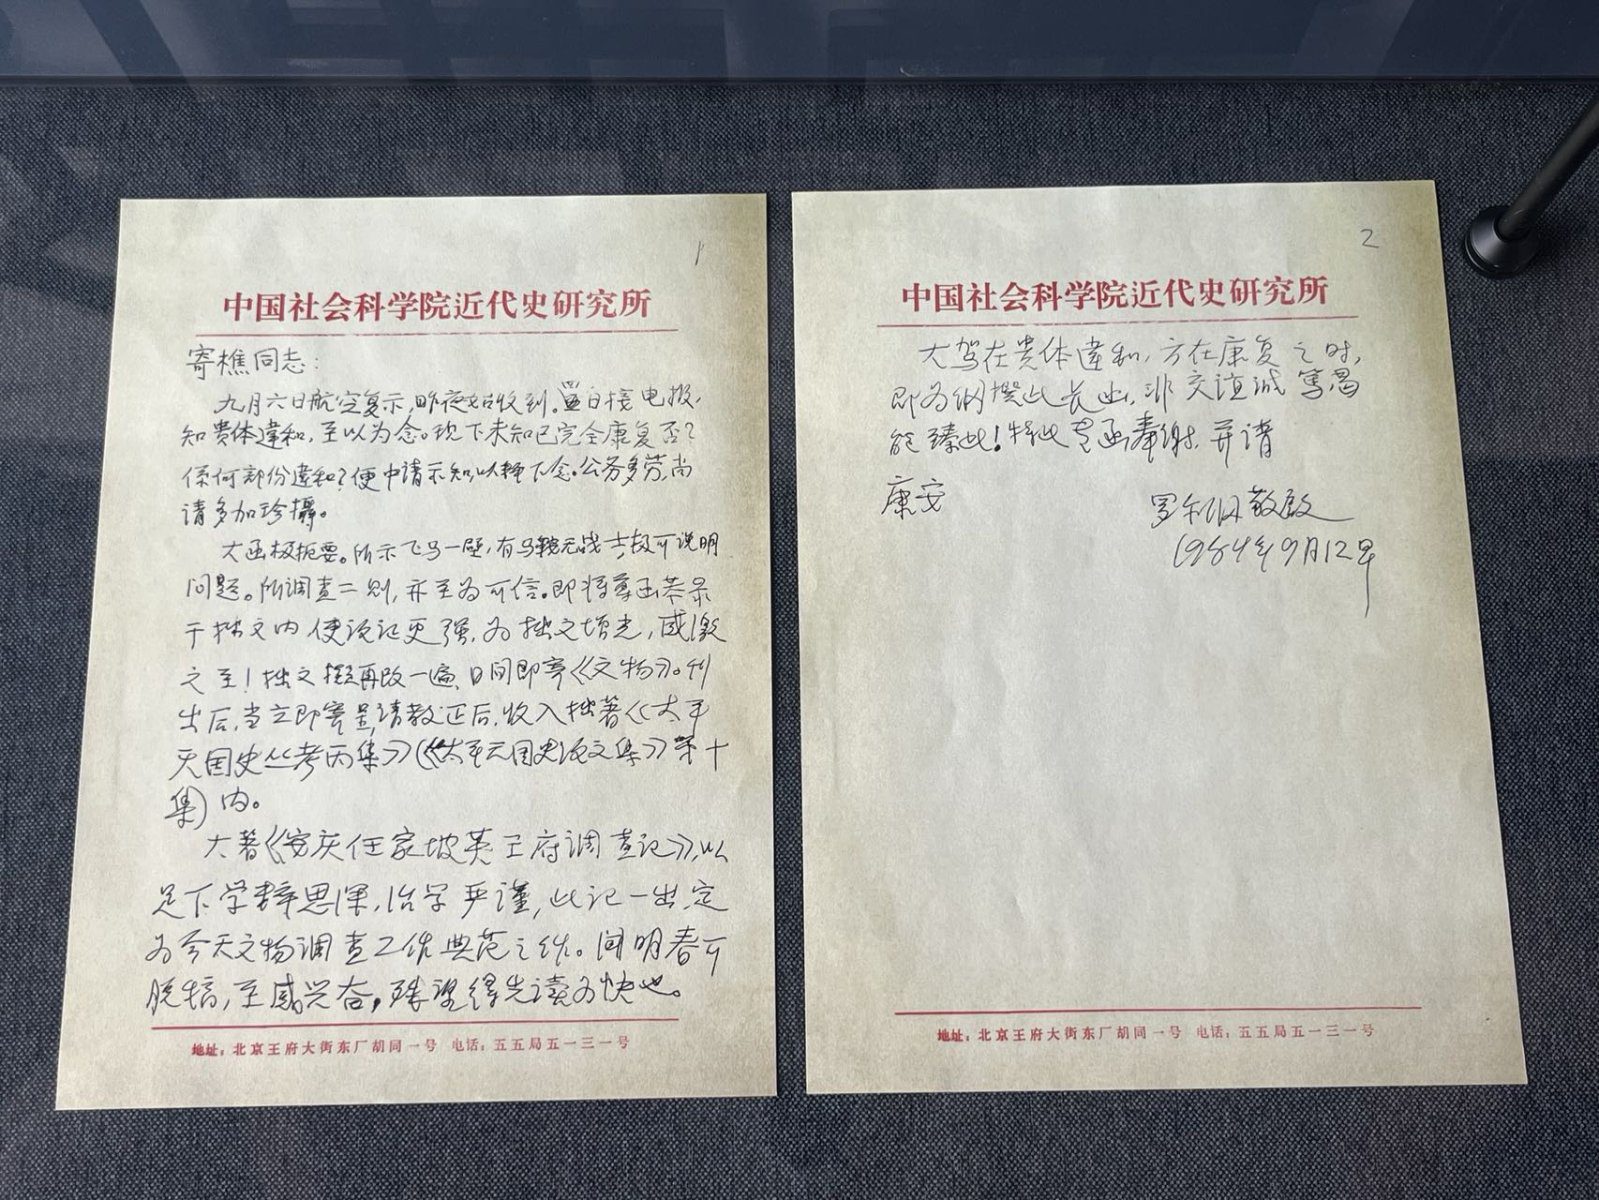 1
中国社会科学院近代史研究所
寄樵同志：
九月六日航空复示，昨夜始收到。置日接电报，
知贵体違和，至以为念。现下未知已完全康复否？
係何部份違和？便中请示知，以释下念。公务多劳，尚
请多加珍摄。
大函极扼要。所示飞马一壁，有马鞍无战士，故可说明
问题。所调查二则，亦至为可信。即将尊函恭录
于拙文内，使论证更强，为拙文增光，感激
之至！拙文拟再改一遍，日间即寄《文物》。刊
出后，当立即寄呈，请教正后，收入拙著《太平
天国史丛考丙集》（《太平天国史论文集》第十
集）内。
大著《安庆任家坡英王府调查记》，以
足下学粹思深，治学严谨，此记一出，定
为今天文物调查工作典范之作。闻明春可
脱稿，至感兴奋，殊望得先读为快也。
地址：北京王府大街东厂胡同一号 电话：五五局五一三一号
2
中国社会科学院近代史研究所
大驾在贵体違和，方在康复之时，
即为纲撰此长函，非交谊诚笃曷
能臻此！特此肃函奉谢，并请
康安
罗尔纲敬启
1984年9月12早
地址：北京王府大街东厂胡同一号 电话：五五局五一三一号